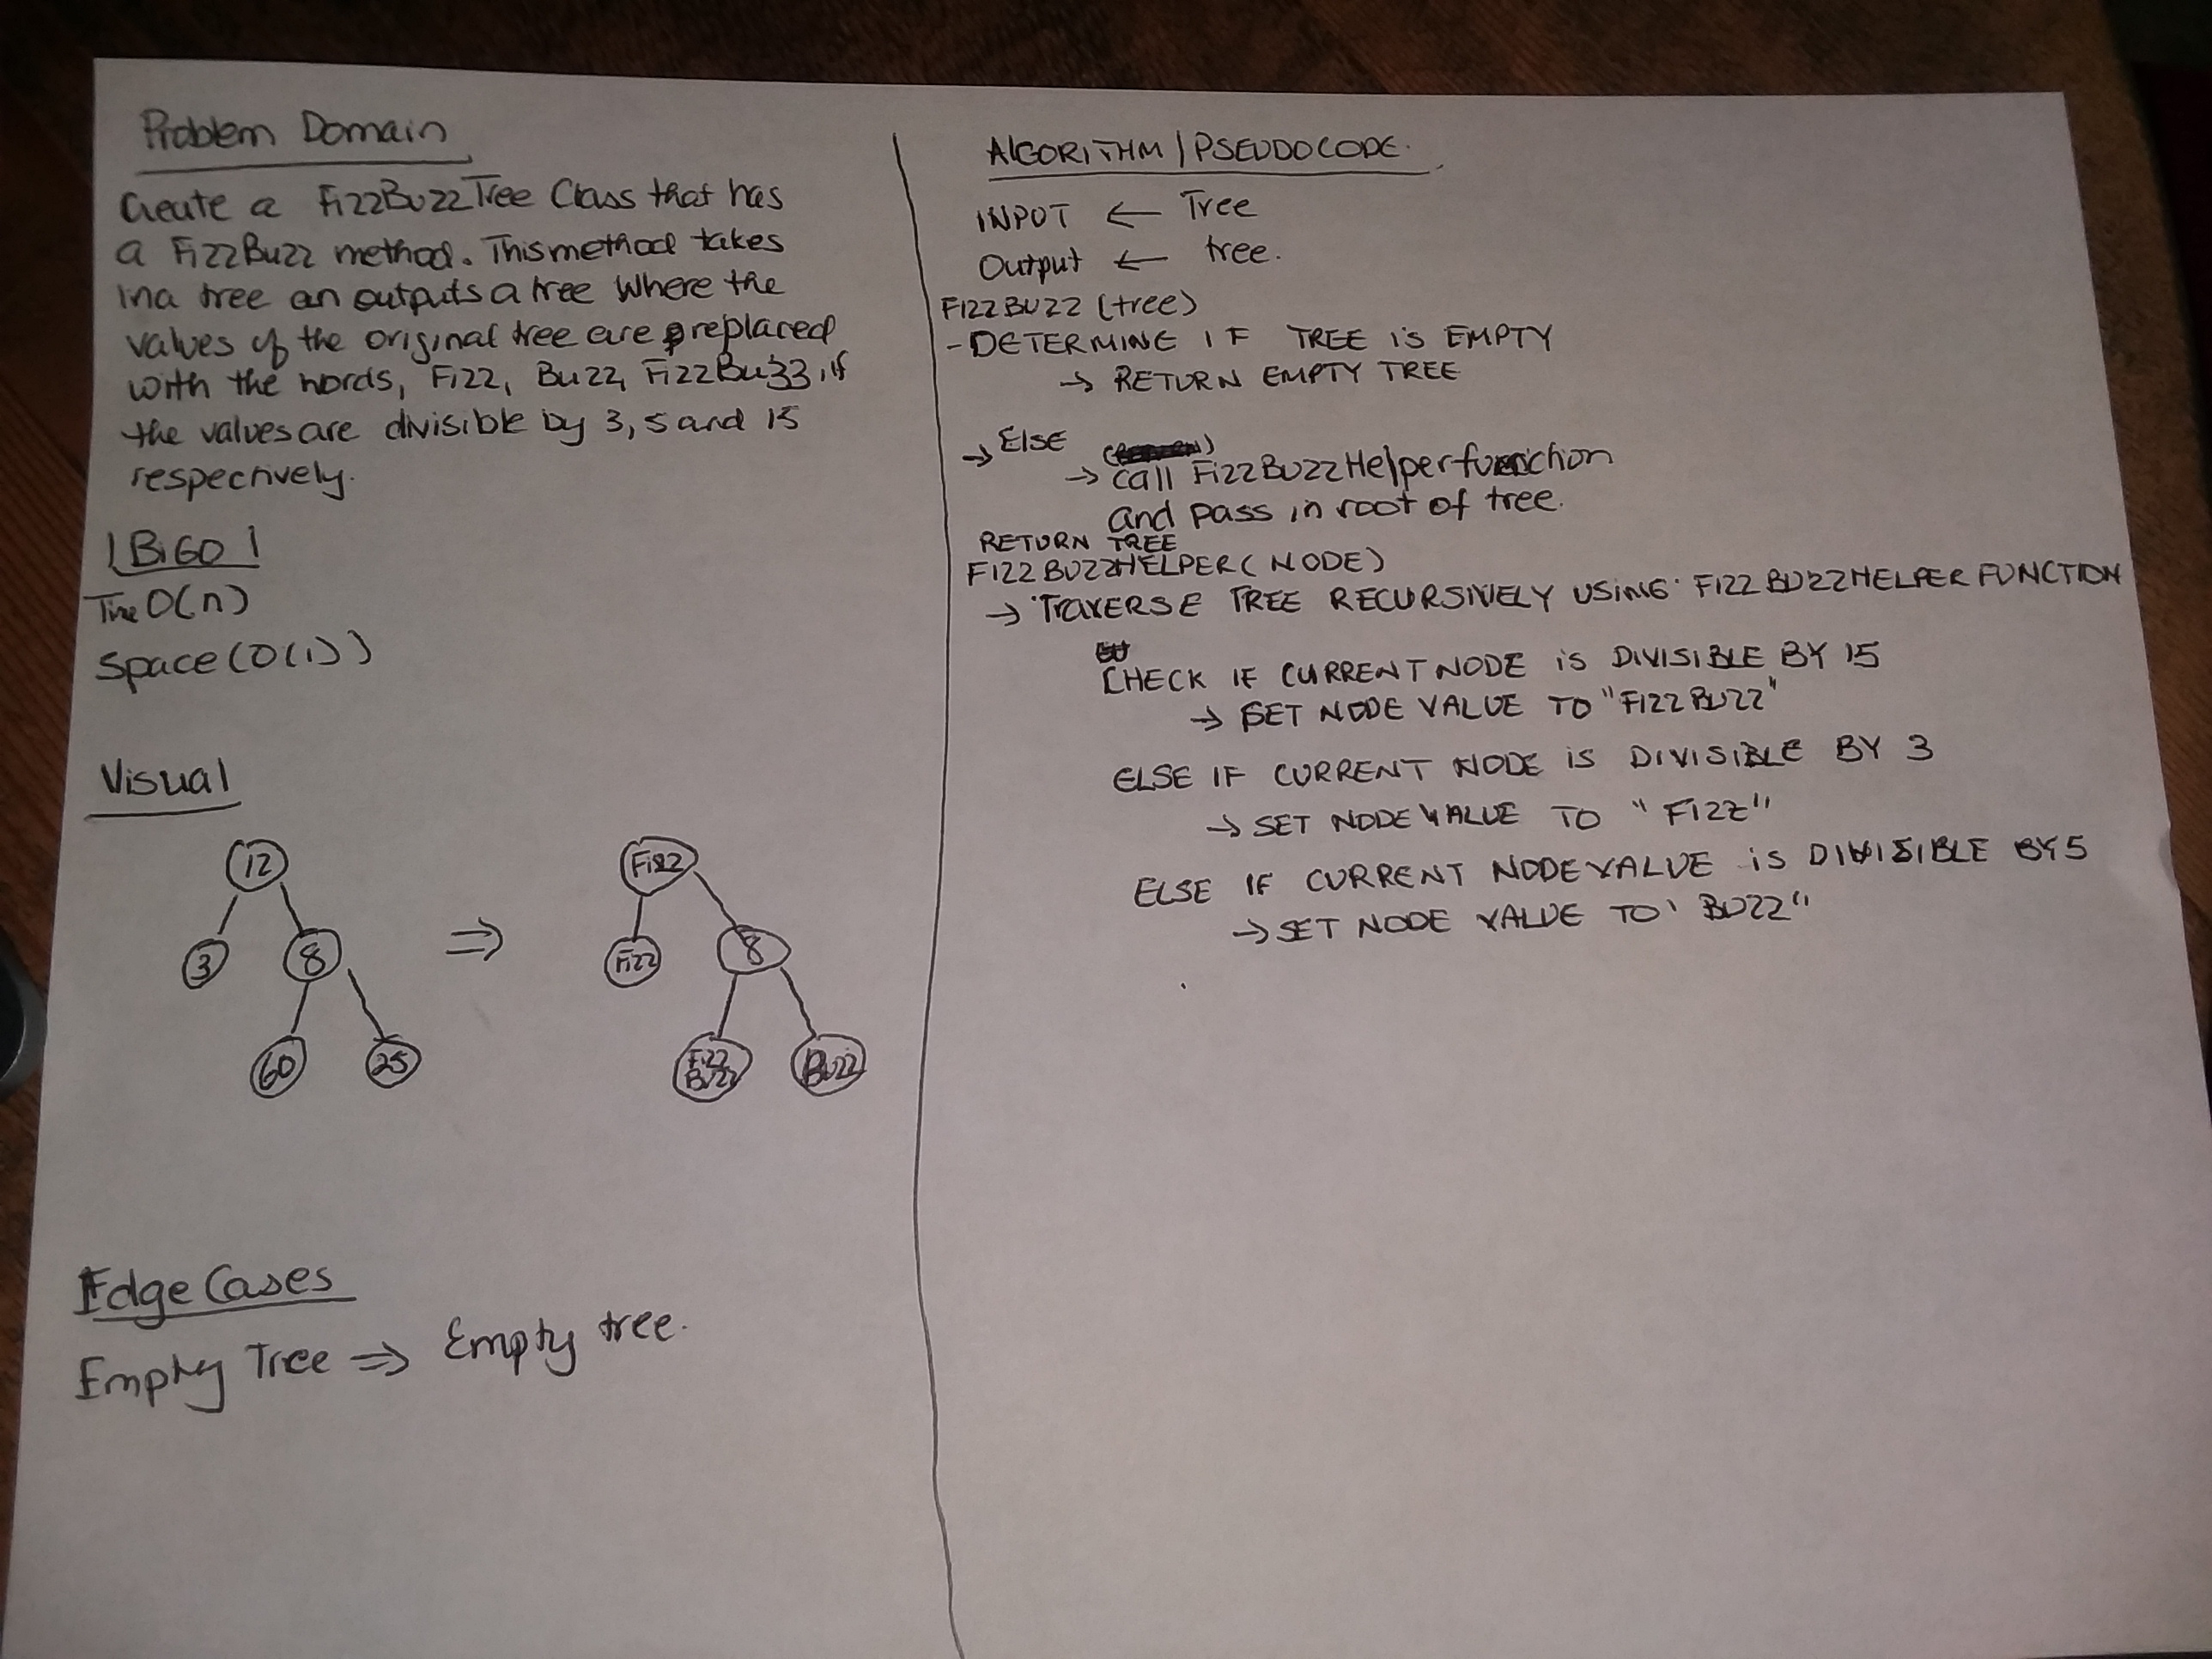 Problem Domain
Create a FizzBuzzTree Class that has
a FizzBuzz method. This method takes
in a tree an outputs a tree where the
values of the original tree are replaced
with the words, Fizz, Buzz, FizzBuzz, if
the values are divisible by 3, 5 and 15
respectively.
BiGO
Time O(n)
Space (O(1))
Visual
12
3 8
60 25
⇒
Fizz
Fizz 8
Fizz
Buzz Buzz
Edge Cases
Empty Tree ⇒ Empty tree.
AlGORITHM / PSEUDOCODE.
INPUT ← Tree
Output ← tree.
FIZZBUZZ (tree)
- DETERMINE IF TREE iS EMPTY
→ RETURN EMPTY TREE
→ Else
→ call FizzBuzzHelper function
and pass in root of tree.
RETURN TREE
FIZZBUZZHELPER (NODE)
→ TRAVERSE TREE RECURSIVELY USING FIZZBUZZHELPER FUNCTION
CHECK IF CURRENT NODE iS DIVISIBLE BY 15
→ SET NODE VALUE TO "FIZZBUZZ"
ELSE IF CURRENT NODE iS DIVISIBLE BY 3
→ SET NODE VALUE TO "FIZZ"
ELSE IF CURRENT NODE VALUE iS DIVISIBLE BY 5
→ SET NODE VALUE TO ' BUZZ"